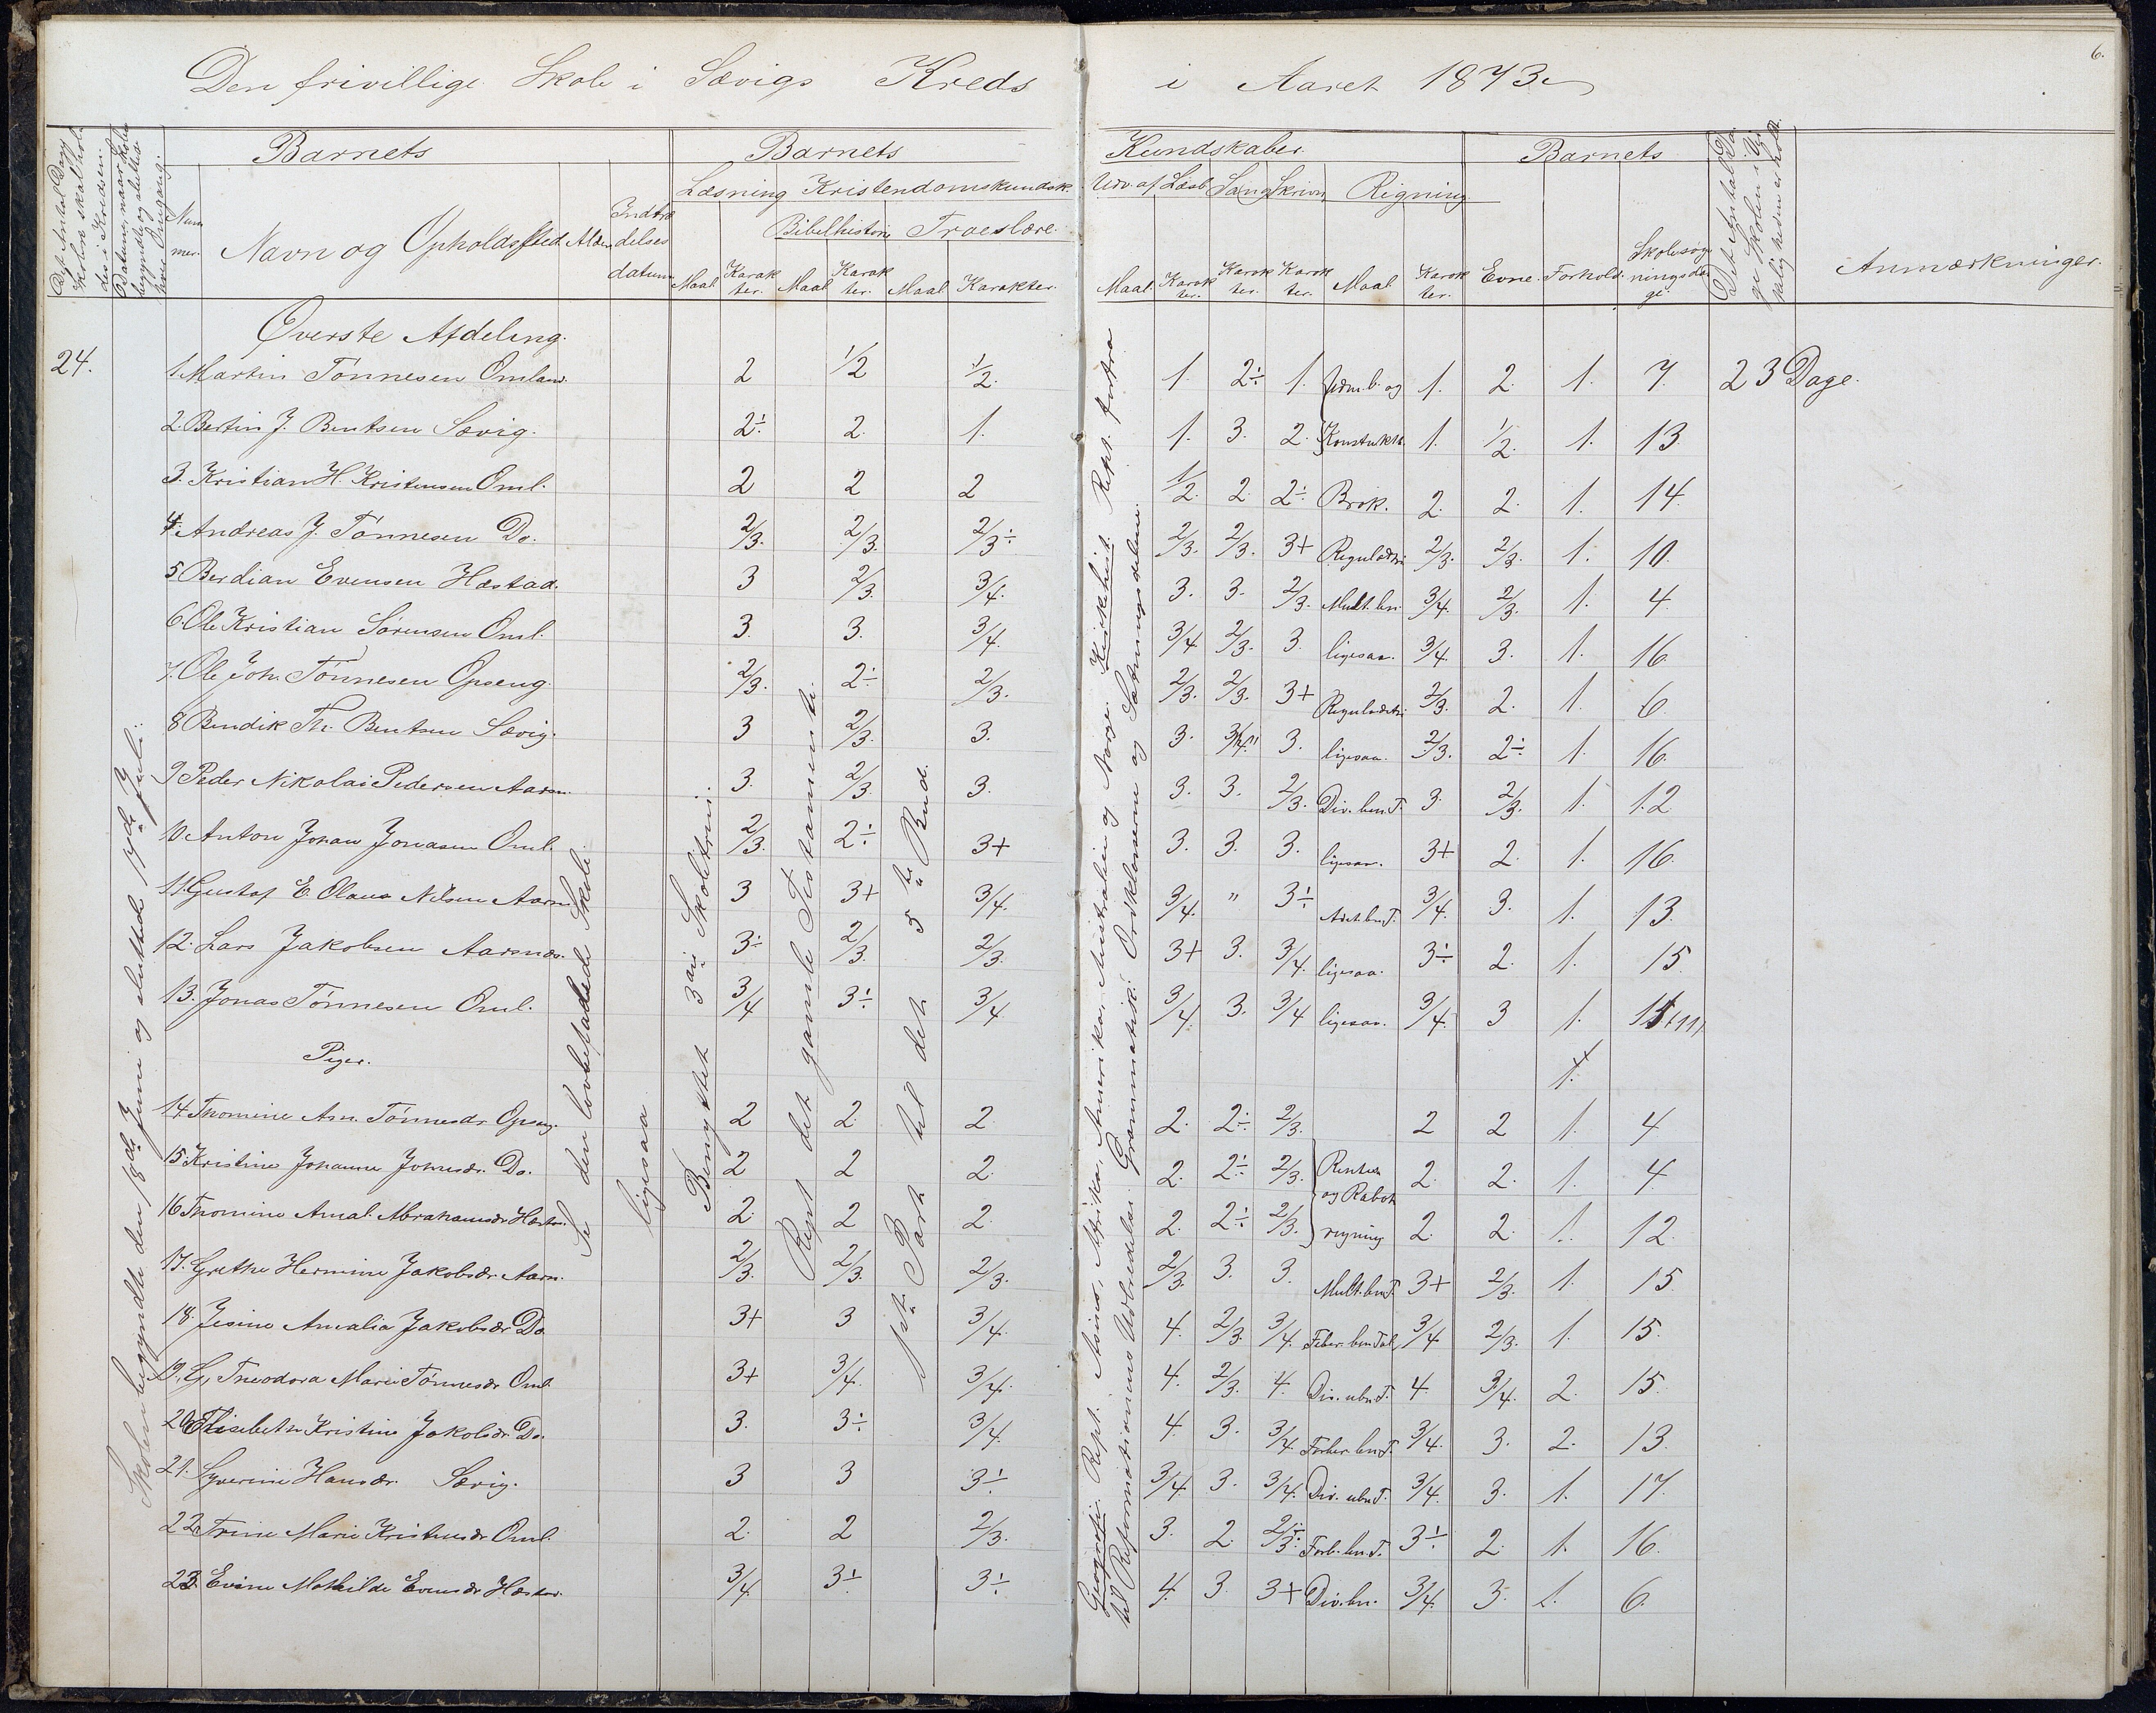 6.
Den frivillige Skole i Sævigs Kreds i Aaret 1873
Det Antal Dage Skolen skal holdes i Kredsen.
Datum, naar Skolen begyndte og sluttede hver Omgang.
Barnets
Nummer.
Navn og Opholdssted
Alder
Indtrædelses datum
Barnets Kundskaber.
Læsning Kristendomskundsk. Udv. af Læseb. Sang Skrivn. Rigning
Bibelhistorie Troeslære.
Maal Karakter. Maal Karakter. Maal Karakter. Maal. Karakter. Karakter. Karakter. Maal Karakter.
Barnets
Evne. Forhold. Skolesøgningsdage.
Det Antal Dage Skolen i Virkeligheden er holdt.
Anmærkninger.
Øverste Afdeling.
24.
1. Martin Tönnesen Omland. 2 1/2 1/2. 1. 2÷ 1. 1. 2. 1. 7. 23 Dage.
2. Bertin J. Bentsen Sævig. 2÷ 2. 1. 1. 3. 2. 1. 1/2. 1. 13.
3. Kristian H. Kristensen Oml. 2 2 2 1/2. 2. 2÷ Brøk. 2. 2. 1. 14.
4. Andreas J. Tönnesen Do. 2/3. 2/3. 2/3÷ 2/3. 2/3. 3+ Reguladetri 2/3. 2/3. 1. 10.
5 Berdian Evensen Hæstad. 3 2/3. 3/4. 3. 3. 2/3. Mult. bn. 3/4. 2/3. 1. 4.
6. Ole Kristian Sörensen Oml. 3. 3. 3/4. 3/4 2/3. 3. ligesaa. 3/4. 3. 1. 16.
7. Ole Joh. Tönnesen Opseng. 2/3. 2÷ 2/3. 2/3. 2/3. 3+ Reguladetri 2/3. 2. 1. 6.
8 Bendik Th. Bentsen Sævig. 3 2/3. 3. 3. 3/4. 3. ligesaa. 2/3. 2÷ 1. 16.
9 Peder Nikolai Pedersen Aarsn. 3. 2/3. 3. 3. 3. 2/3. Div. bn. T. 3. 2/3. 1. 12.
10. Anton Johan Jonasen Oml. 2/3. 2÷ 3+ 3. 3. 3. ligesaa. 3+ 2. 1. 16.
11. Gustaf E. Olaus Nilsen Aarsn. 3 3+ 3/4. 3/4. " 3÷ 3/4. 3. 1. 13.
12. Lars Jakobsen Aarsnæs. 3÷ 2/3. 2/3. 3+ 3. 3/4. ligesaa. 3÷ 2. 1. 15.
13. Jonas Tönnesen Oml. 3/4 3÷ 3/4 3/4. 3. 3/4 ligesaa. 3/4. 3 1.
Piger.
1.
14 Thomine Asn. Tönnesdr. Opseng. 2 2. 2. 2. 2÷ 2/3. 2 2 1. 4
15. Kristine Johanne Johnsdr. Do. 2 2 2. 2. 2÷ 2/3. Renters 2. 2. 1. 4.
og Rabat
16 Thomine Amal. Abrahamsdr. Hæstad. 2. 2 2. 2. 2÷ 2/3. rigning 2. 2. 1. 12.
17. Grethe Hermine Jakobsdr. Aarsn. 2/3. 2/3. 2/3. 2/3. 3. 3. Mult. bn. T. 3+ 2/3. 1. 15
18. Jesine Amalia Jakobsdr. Do. 3+ 3 3/4. 4. 2/3. 3/4. 3/4 2/3. 1. 15.
19. G. Theodora Marie Tönnesdr. Oml. 3+ 3/4. 3/4. 4. 2/3. 4. Div. ubn. T. 4. 3/4. 2. 15.
20. Elisebeth Kristine Jakobsdr. Do. 3. 3÷ 3/4. 4. 3. 3/4. 3/4. 3. 2. 13.
21. Syverine Hansdr. Sævig. 3 3 3÷ 3/4. 3. 3/4. Div. ubn. T. 3/4. 3. 1. 17.
22. Trine Marie Kristensdr. Oml. 2. 2 2/3. 3. 2. 2/3÷ 3÷ 2. 1. 16.
23. Evine Mathilde Evensdr. Hæstad. 3/4. 3÷ 3÷ 4. 3. 3+ Div. bn. 3/4. 3. 1. 6.
Skolen begyndte den 18de Juni og sluttede 17de Juli.
Se den lovbefalede Skole
ligesaa
Benyttet 3die Skoletrin.
Rept det gamle Testamente.
1st. Part til det 5te Bud.
Geografi: Rept. Asien, Afrika, Amerika, Australien og Norge. Kirkehist. Rept. fortra
til Reformationens Udbredelse. Grammatik: Ordklasserne og Sætningsdelene.